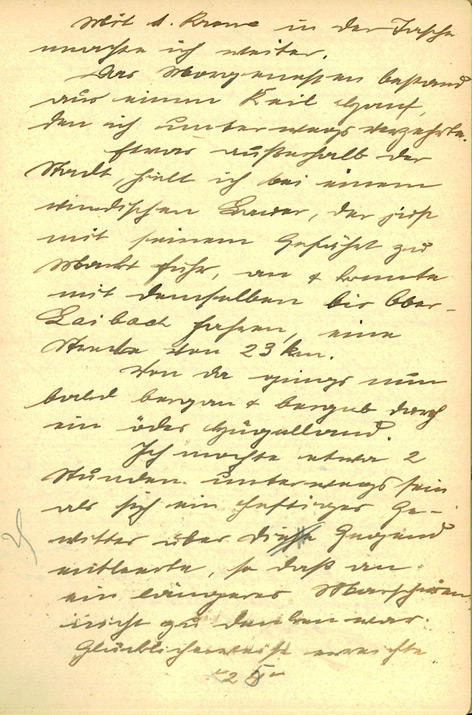 Mit 1. Krone in der Tasche
machte ich weiter.
Das Morgenessen bestand
aus einem Keil Hanf,
den ich unterwegs verzehrte.
Etwas außerhalb der
Stadt, hielt ich bei einem
windischen Bauer, der just
mit seinem Gefährt zu
Markt fuhr, an & konnte
mit demselben bis Ober-
Laibach fahren, eine
Strecke von 23 km.
Von da gings nun
bald bergan & bergab durch
ein ödes Hügelland.
Ich mochte etwa 2
Stunden unterwegs sein
als sich ein heftiges Ge-
witter über diese Gegend
entleerte, so daß an
ein längeres Marschieren
nicht zu denken war.
Glücklicherweise erreichte